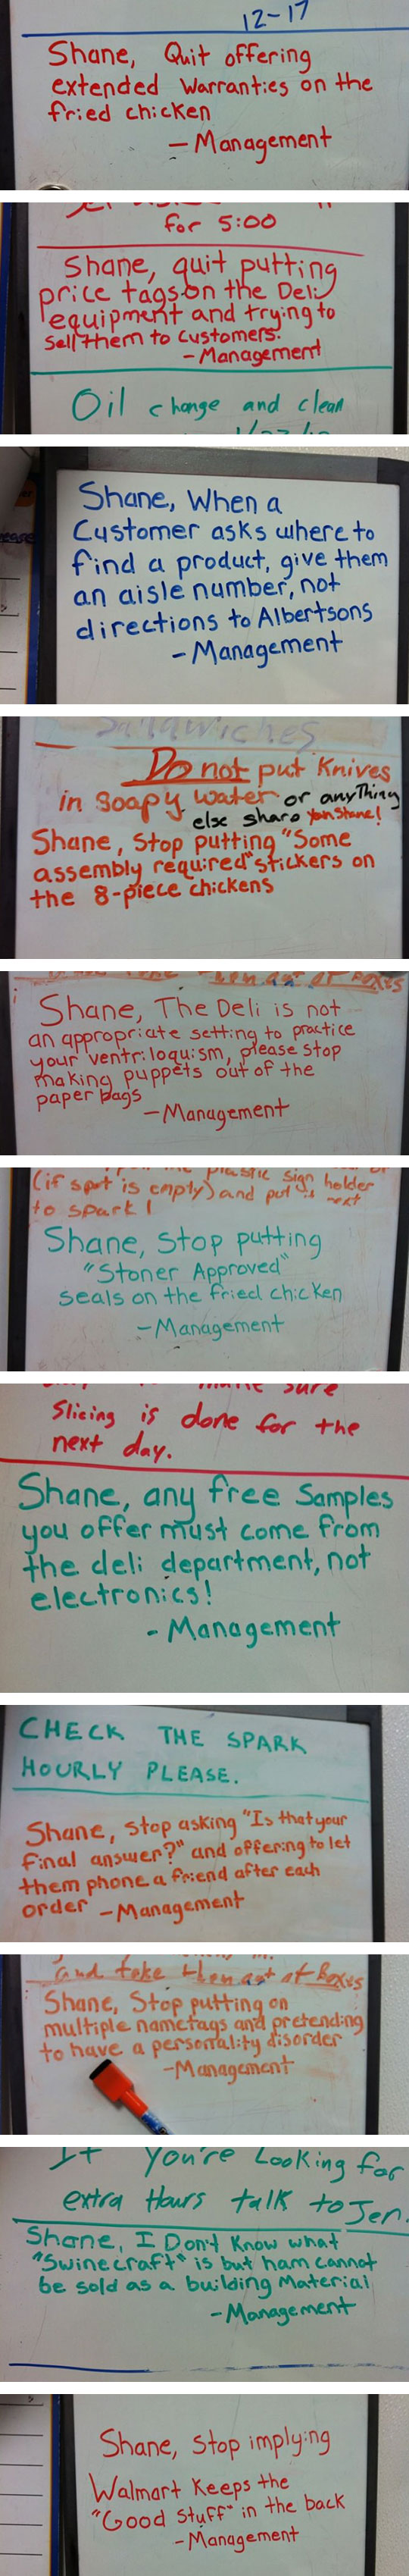 12-17
Shane, Quit offering
extended Warranties on the
fried chicken
- Management
for 5:00
Shane, quit putting
price tags on the Deli
equipment and trying to
sell them to customers.
- Management
Oil change and clean
Shane, When a
Customer asks where to
find a product, give them
an aisle number, not
directions to Albertsons
- Management
Sandwiches
Do not put Knives
in Soapy water or anything
else sharp You Shane!
Shane, Stop putting "Some
assembly required" stickers on
the 8-piece chickens
Shane, The Deli is not
an appropriate setting to practice
your ventriloquism, please stop
making puppets out of the
paper bags
- Management
plastic sign holder
(if spot is empty) and put is next
to spark!
Shane, Stop putting
"Stoner Approved"
seals on the fried chicken
- Management
make sure
Slicing is done for the
next day.
Shane, any free Samples
you offer must come from
the deli department, not
electronics!
- Management
CHECK THE SPARK
HOURLY PLEASE.
Shane, stop asking "Is that your
final answer?" and offering to let
them phone a friend after each
order - Management
and take them out of Boxes
Shane, Stop putting on
multiple nametags and pretending
to have a personality disorder
- Management
If you're Looking for
extra Hours talk to Jen.
Shane, I Don't Know what
"Swinecraft" is but ham cannot
be sold as a building Material
- Management
Shane, Stop implying
Walmart Keeps the
"Good Stuff" in the back
- Management